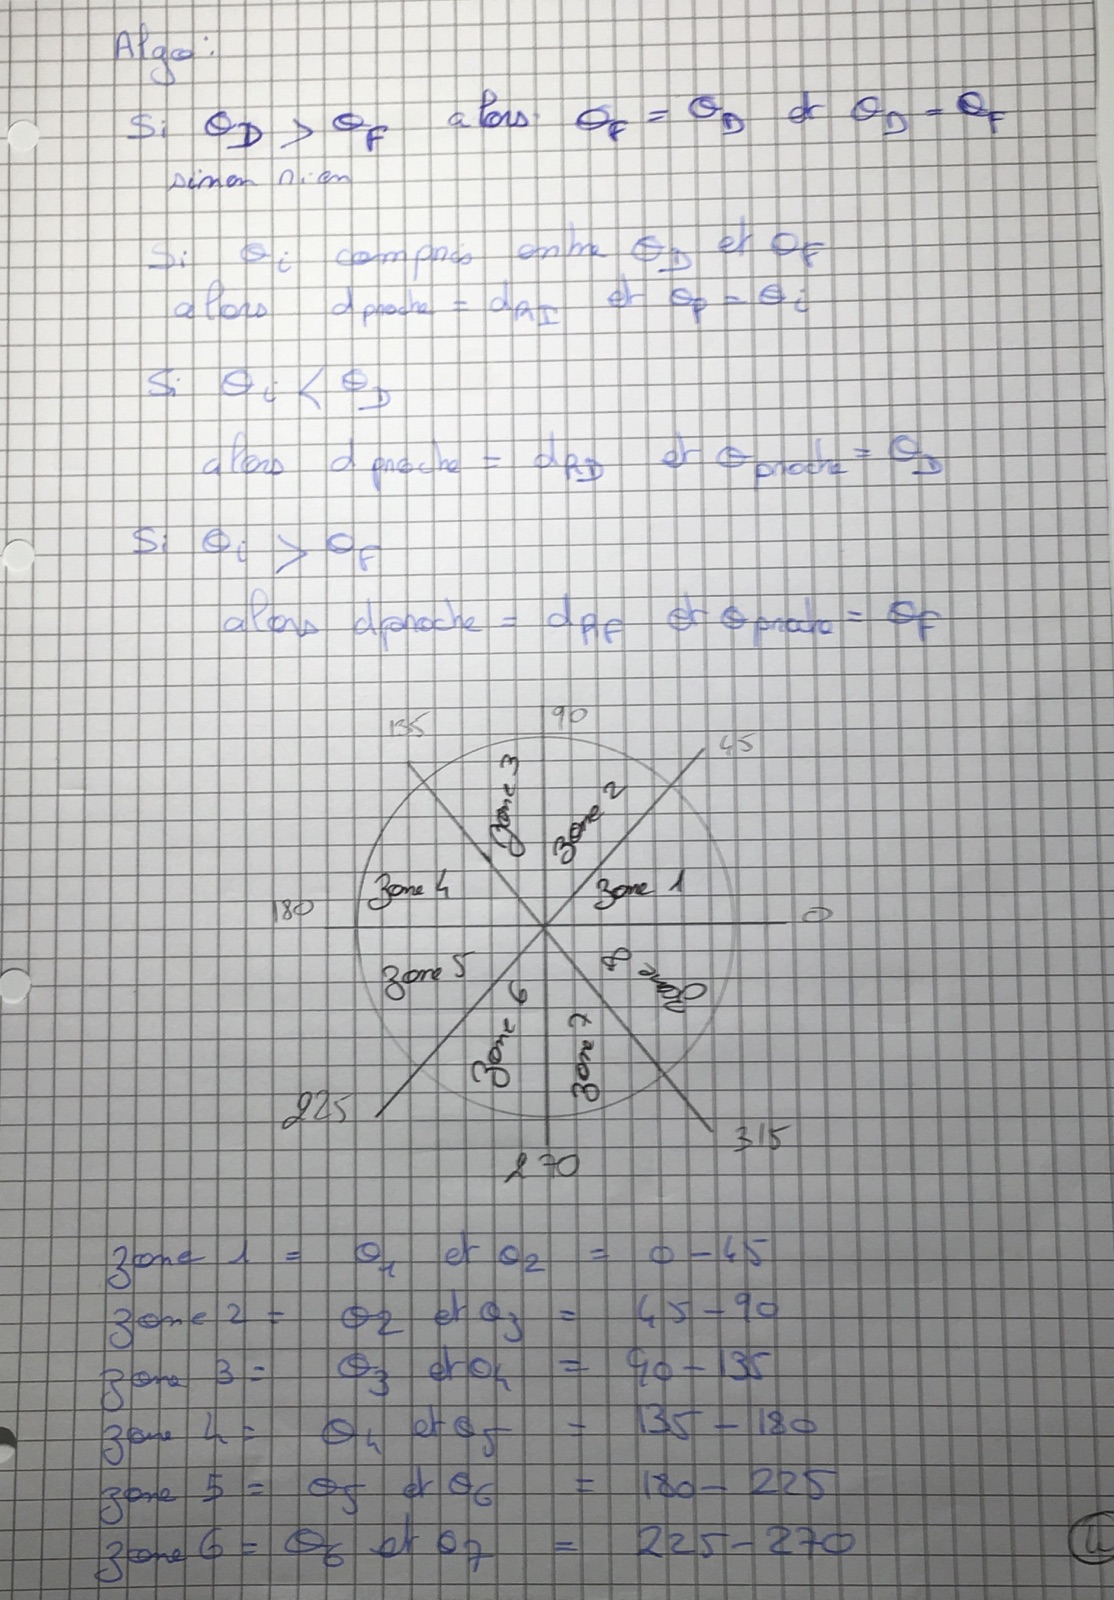 Algo:
Si θD > θF alors θF = θD et θD = θF
sinon rien
Si θi compris entre θD et θF
alors dproche = dRI et θP = θi
Si θi < θD
alors dproche = dRD et θproche = θD
Si θi > θF
alors dproche = dRF et θproche = θF
135
90
45
Zone 3
Zone 2
Zone 4
Zone 1
180
0
Zone 5
Zone 8
Zone 6
Zone 7
225
315
270
Zone 1 = θ1 et θ2 = 0-45
Zone 2 = θ2 et θ3 = 45-90
Zone 3 = θ3 et θ4 = 90-135
Zone 4 = θ4 et θ5 = 135-180
Zone 5 = θ5 et θ6 = 180-225
Zone 6 = θ6 et θ7 = 225-270